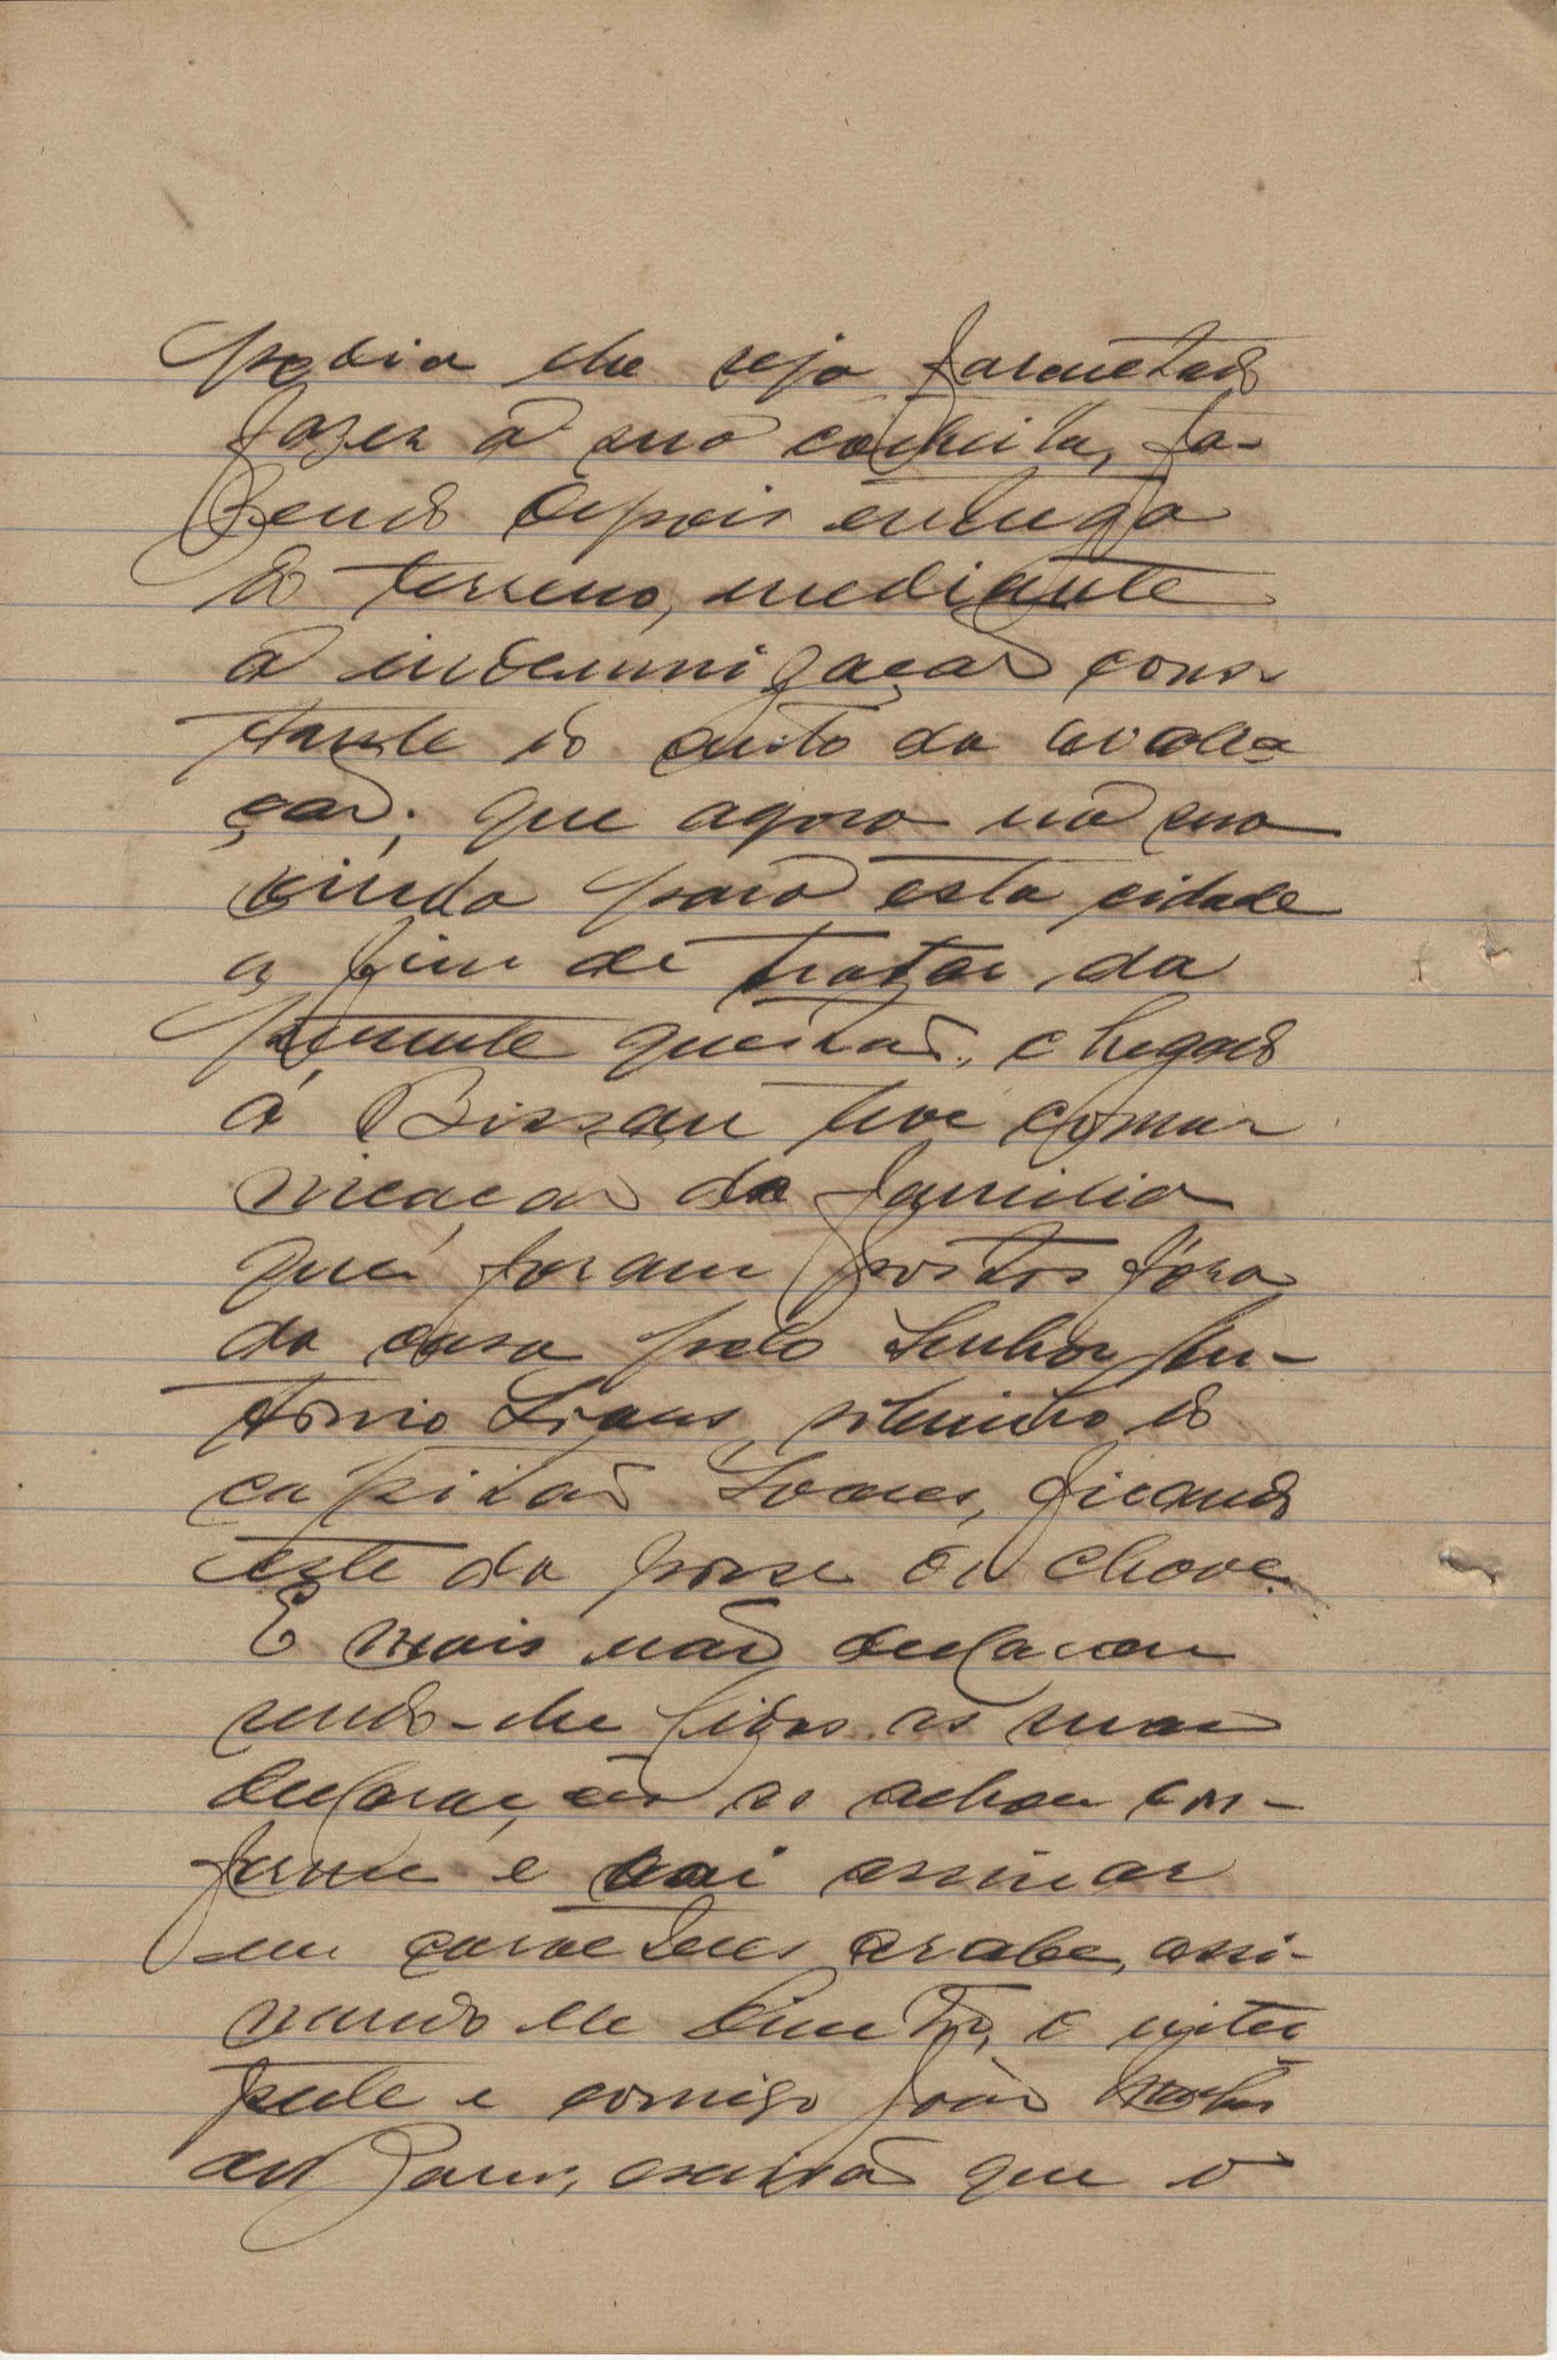 pedia lhe seja
fazer a sua colheita, fa-
zendo depois entrega
do terreno, mediante
a indemnisação cons-
tante do auto da avalia
ção; que agora na sua
vinda para esta cidade
a fim de tratar da
presente questão, chegado
á Bissau teve comu-
nicação da familia
que foram postos fóra
da casa pelo Senhor An-
tonio sobrinho do
capitão Soares, ficando
este da posse da chave.
E mais não declarou
sendo-lhe lidas as suas
declarações as achou con-
forme e vai assinar
em caracteres arabe, assi-
nando ele e inter
prete e comigo João
escrivão que o